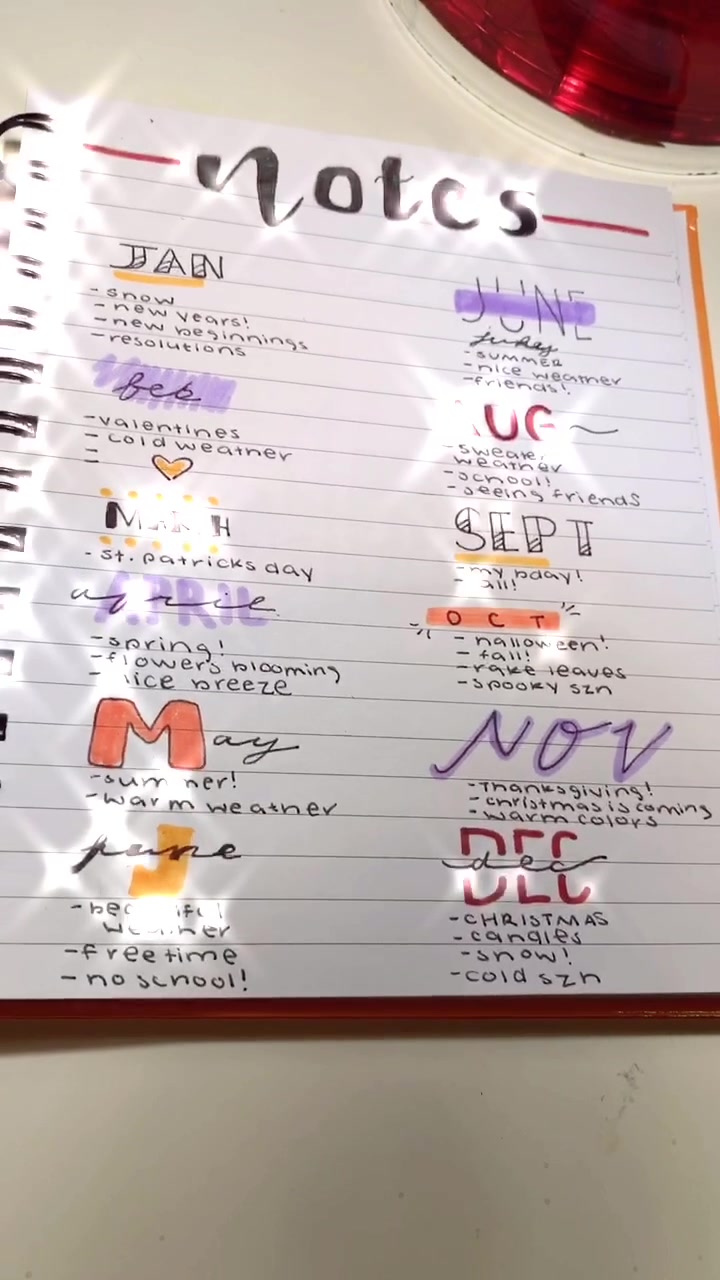 notes
JAN
- snow
- new years!
- new beginnings
- resolutions
feb
- valentines
- cold weather
MARCH
- st. patricks day
april
APRIL
- spring!
- flowers blooming
- nice breeze
May
- summer!
- warm weather
june
J
- beautiful
weather
- free time
- no school!
JUNE
- SUMMER
- nice weather
- friends!
AUG
- sweater
weather
- school!
- seeing friends
SEPT
- my bday!
- fall!
OCT
- halloween!
- fall!
- rake leaves
- spooky szn
NOV
- Thanksgiving!
- christmas is coming
- warm colors
DEC
dec
- CHRISTMAS
- candles
- snow!
- cold szn